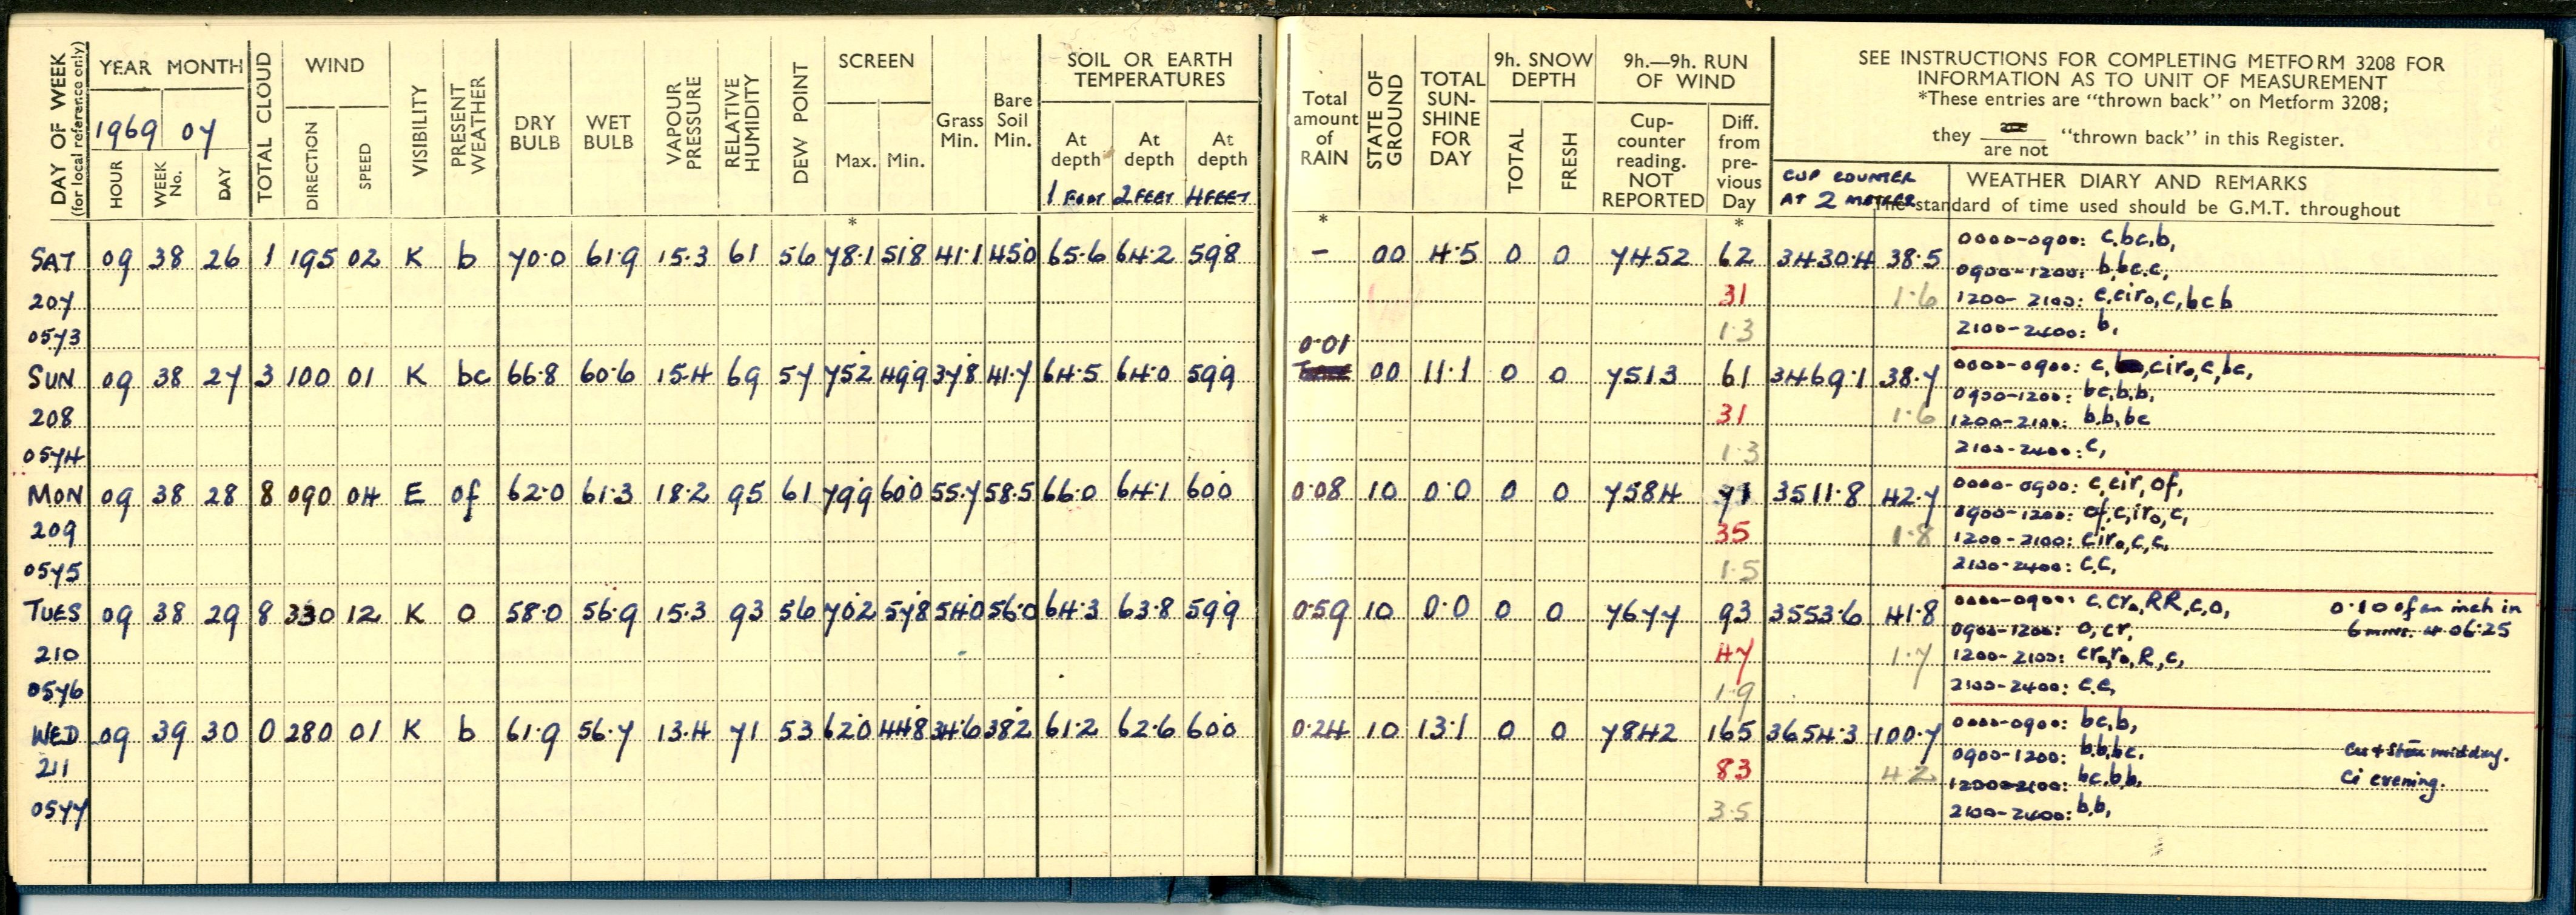 DAY OF WEEK (for local reference only)
YEAR MONTH
1969 07
HOUR WEEK No. DAY
TOTAL CLOUD
WIND
DIRECTION SPEED
VISIBILITY
PRESENT WEATHER
DRY BULB
WET BULB
VAPOUR PRESSURE
RELATIVE HUMIDITY
DEW POINT
SCREEN
Max. Min.
Grass Min.
Bare Soil Min.
SOIL OR EARTH TEMPERATURES
At depth At depth At depth
1 FOOT 2 FEET 4 FEET
Total amount of RAIN
STATE OF GROUND
TOTAL SUN-SHINE FOR DAY
9h. SNOW DEPTH
TOTAL FRESH
9h.—9h. RUN OF WIND
Cup-counter reading. NOT REPORTED
Diff. from pre-vious Day
SEE INSTRUCTIONS FOR COMPLETING METFORM 3208 FOR
INFORMATION AS TO UNIT OF MEASUREMENT
*These entries are "thrown back" on Metform 3208;
they are are not "thrown back" in this Register.
CUP COUNTER
AT 2 METRES
WEATHER DIARY AND REMARKS
The standard of time used should be G.M.T. throughout
* * *
SAT 09 38 26 1 195 02 K b 70.0 61.9 15.3 61 56 78.1 51.8 41.1 45.0 65.6 64.2 59.8 – 00 4.5 0 0 7452 62 3430.4 38.5 0000-0900: c,bc,b,
0900-1200: b,bc,c,
207 31 1.6 1200-2100: c,ciro,c,bcb
0573 1.3 2100-2400: b,
0.01
SUN 09 38 27 3 100 01 K bc 66.8 60.6 15.4 69 57 75.2 49.9 37.8 41.7 64.5 64.0 59.9 00 11.1 0 0 7513 61 3469.1 38.7 0000-0900: c, ciro,c,bc,
0900-1200: bc,b,b,
208 31 1.6 1200-2100: b,b,bc
0574 1.3 2100-2400: c,
MON 09 38 28 8 090 04 E of 62.0 61.3 18.2 95 61 79.9 60.0 55.7 58.5 66.0 64.1 60.0 0.08 10 0.0 0 0 7584 71 3511.8 42.7 0000-0900: c,cir,of,
0900-1200: of,c,iro,c,
209 35 1.8 1200-2100: ciro,c,c,
0575 1.5 2100-2400: c,c,
TUES 09 38 29 8 330 12 K o 58.0 56.9 15.3 93 56 70.2 57.8 54.0 56.0 64.3 63.8 59.9 0.59 10 0.0 0 0 7677 93 3553.6 41.8 0000-0900: c,cro,RR,c,o, 0.10 of an inch in
0900-1200: o,cr, 6 mins. at 06:25
210 47 1.7 1200-2100: cro,ro,R,c,
0576 1.9 2100-2400: c,c,
WED 09 39 30 0 280 01 K b 61.9 56.7 13.4 71 53 62.0 44.8 34.6 38.2 61.2 62.6 60.0 0.24 10 13.1 0 0 7842 165 3654.3 100.7 0000-0900: bc,b,
0900-1200: b,b,bc, midday.
211 83 4.2 1200-2100: bc,b,b, Ci evening.
0577 3.5 2100-2400: b,b,